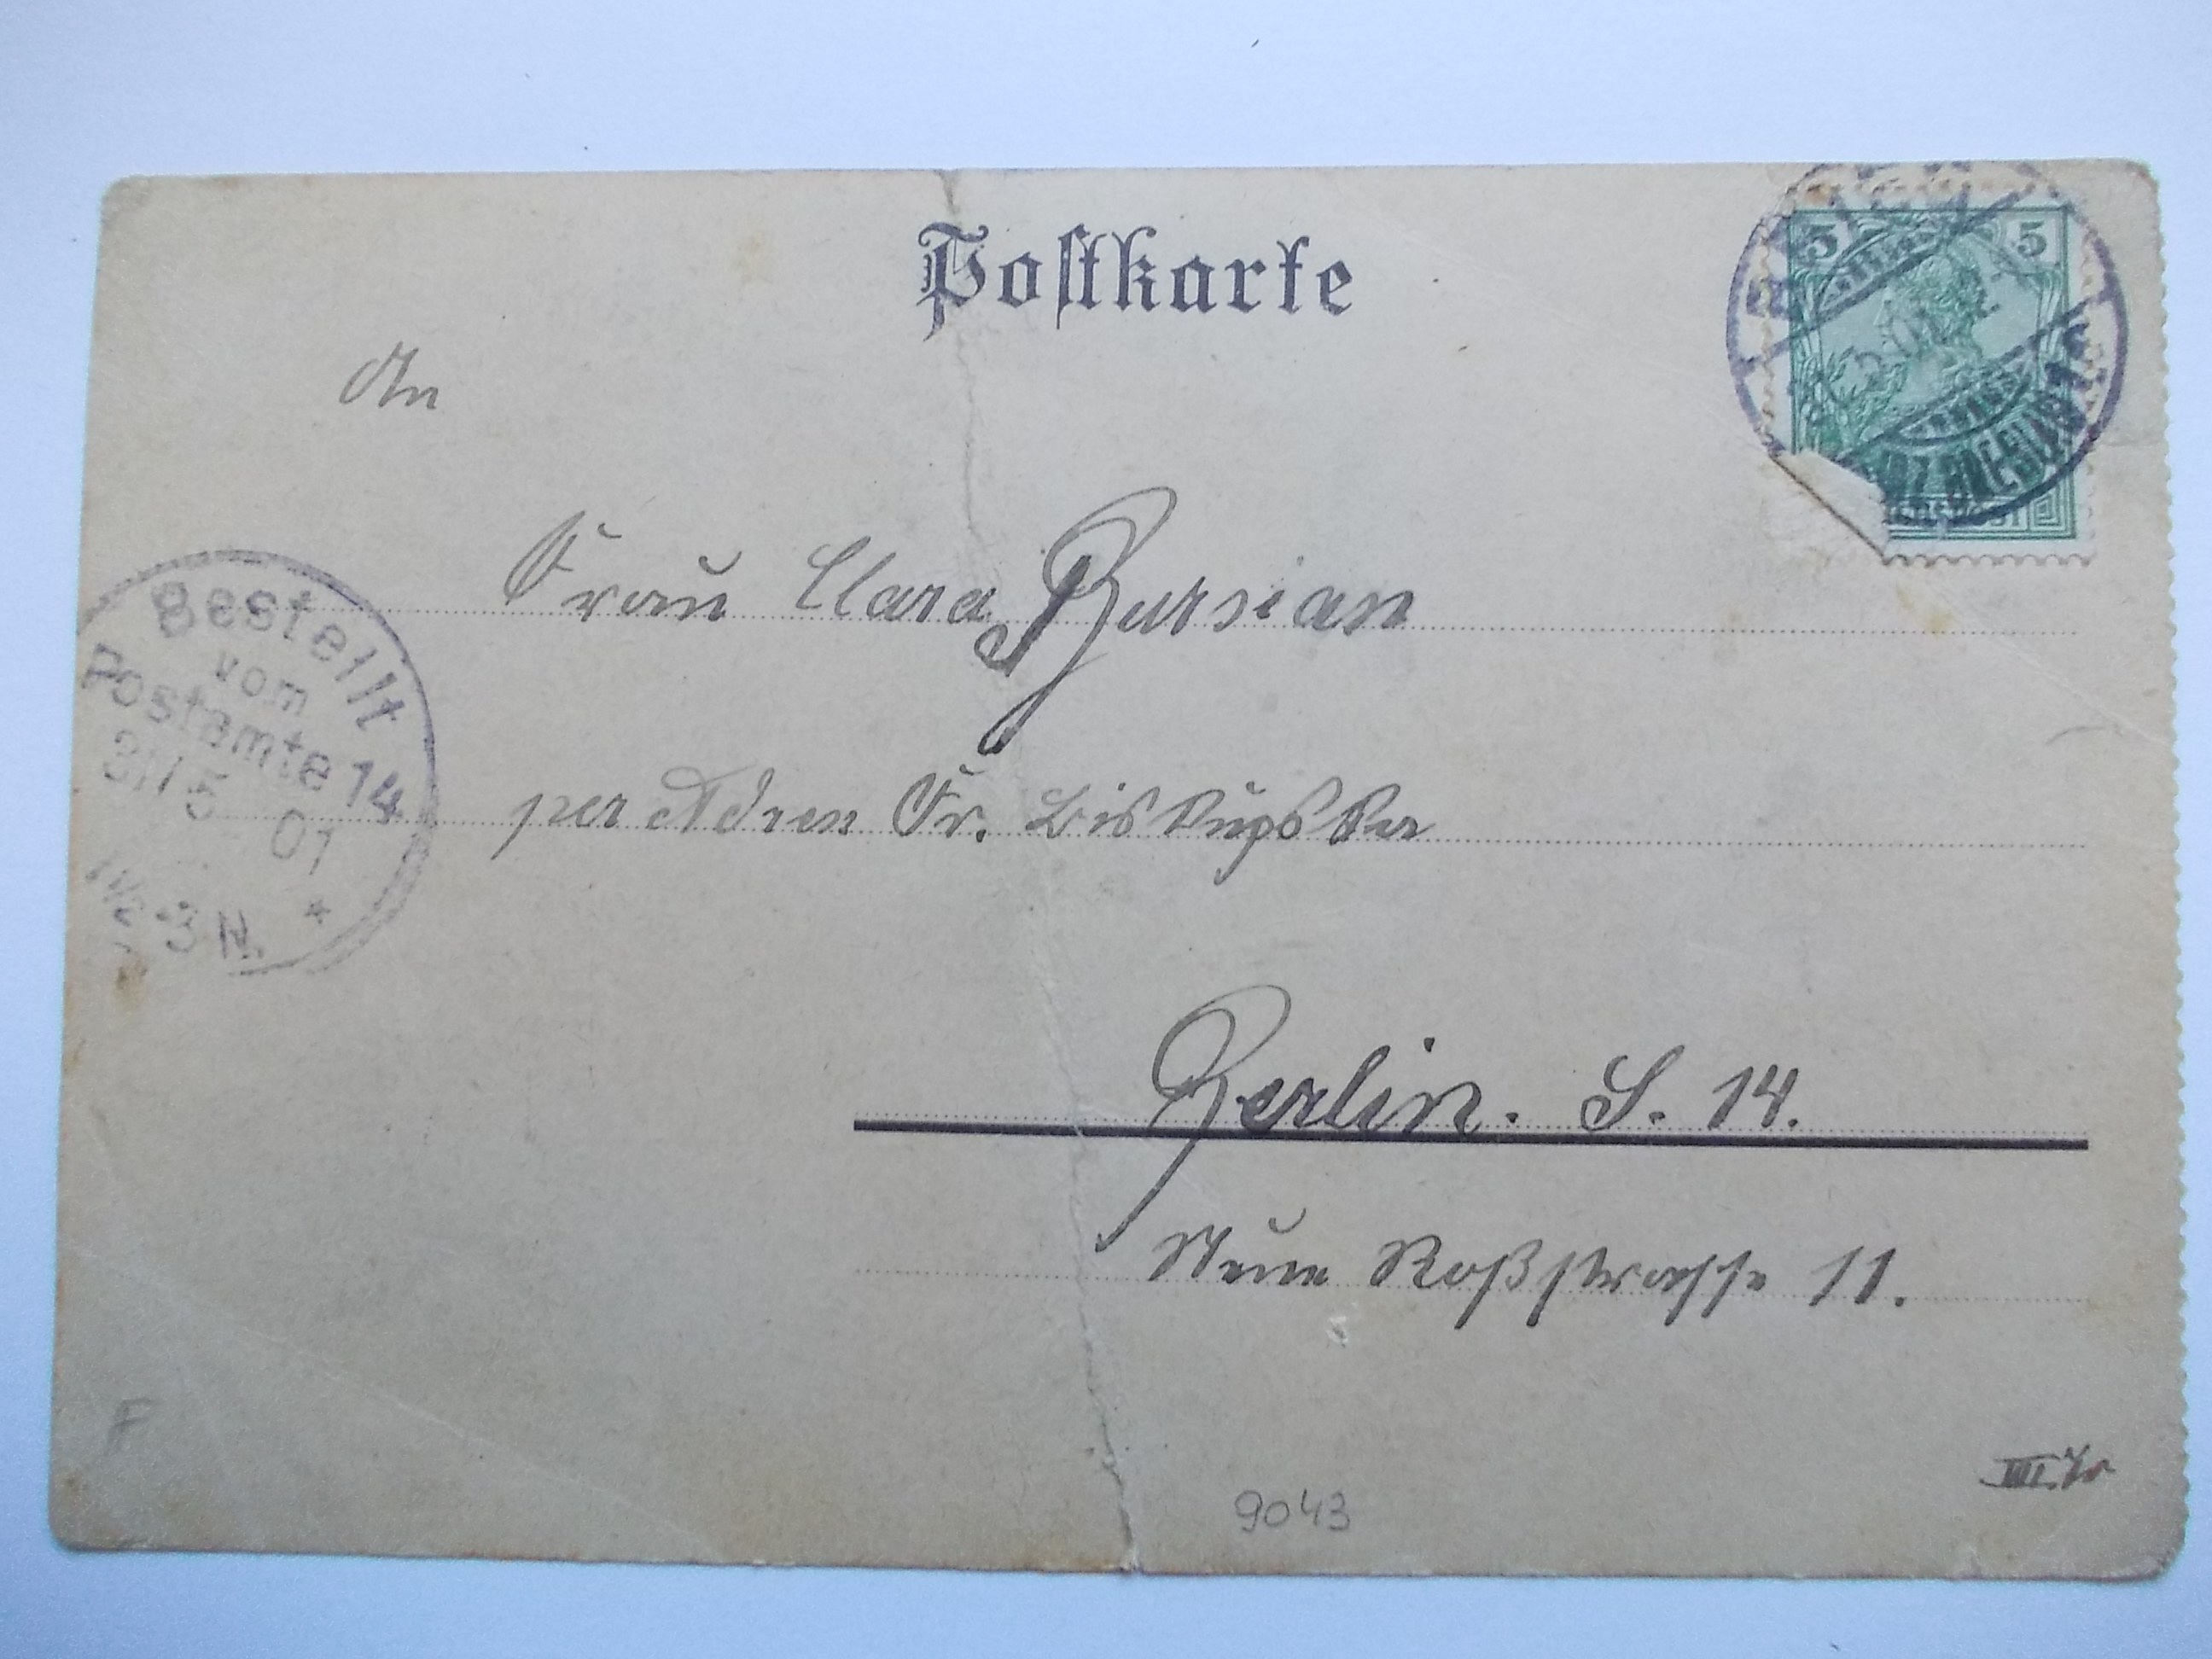 Postkarte
5 5
An
Frau Clara Bursian
Bestellt
vom
Postamte 14
31/5 01
3 N.
per Adren Fr. Biskupska
Berlin. S. 14.
Neue Roßstrasse 11.
F
9043
III.